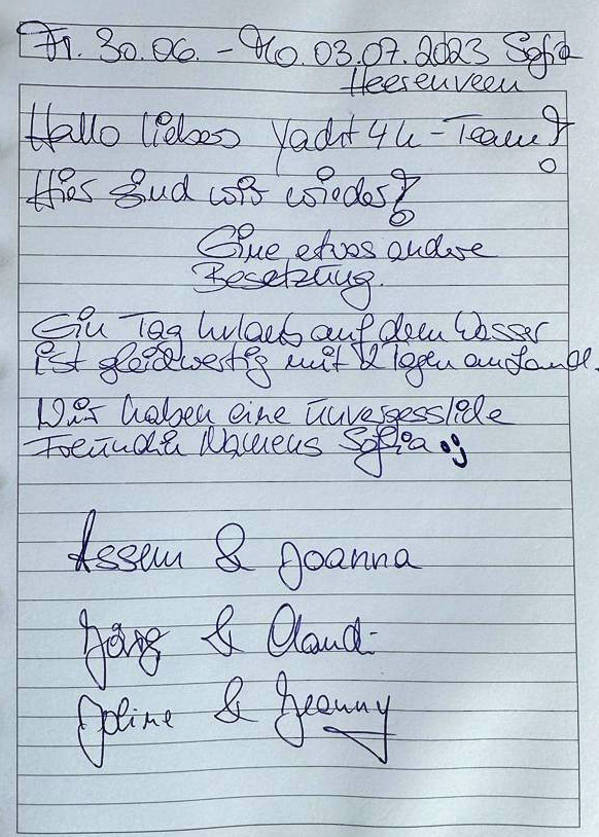 Fr. 30.06. - Mo. 03.07.2023 Sofia
Heerenveen
Hallo liebes Yacht 4 u - Team!
Hier sind wir wieder!
Eine etwas andere
Besetzung.
Ein Tag Urlaub auf dem Wasser
ist gleichwertig mit Tagen an Land.
Wir haben eine unvergessliche
Freundin Namens Sofia :)
Assem & Joanna
Jörg & Claudi
Joline & Jeanny